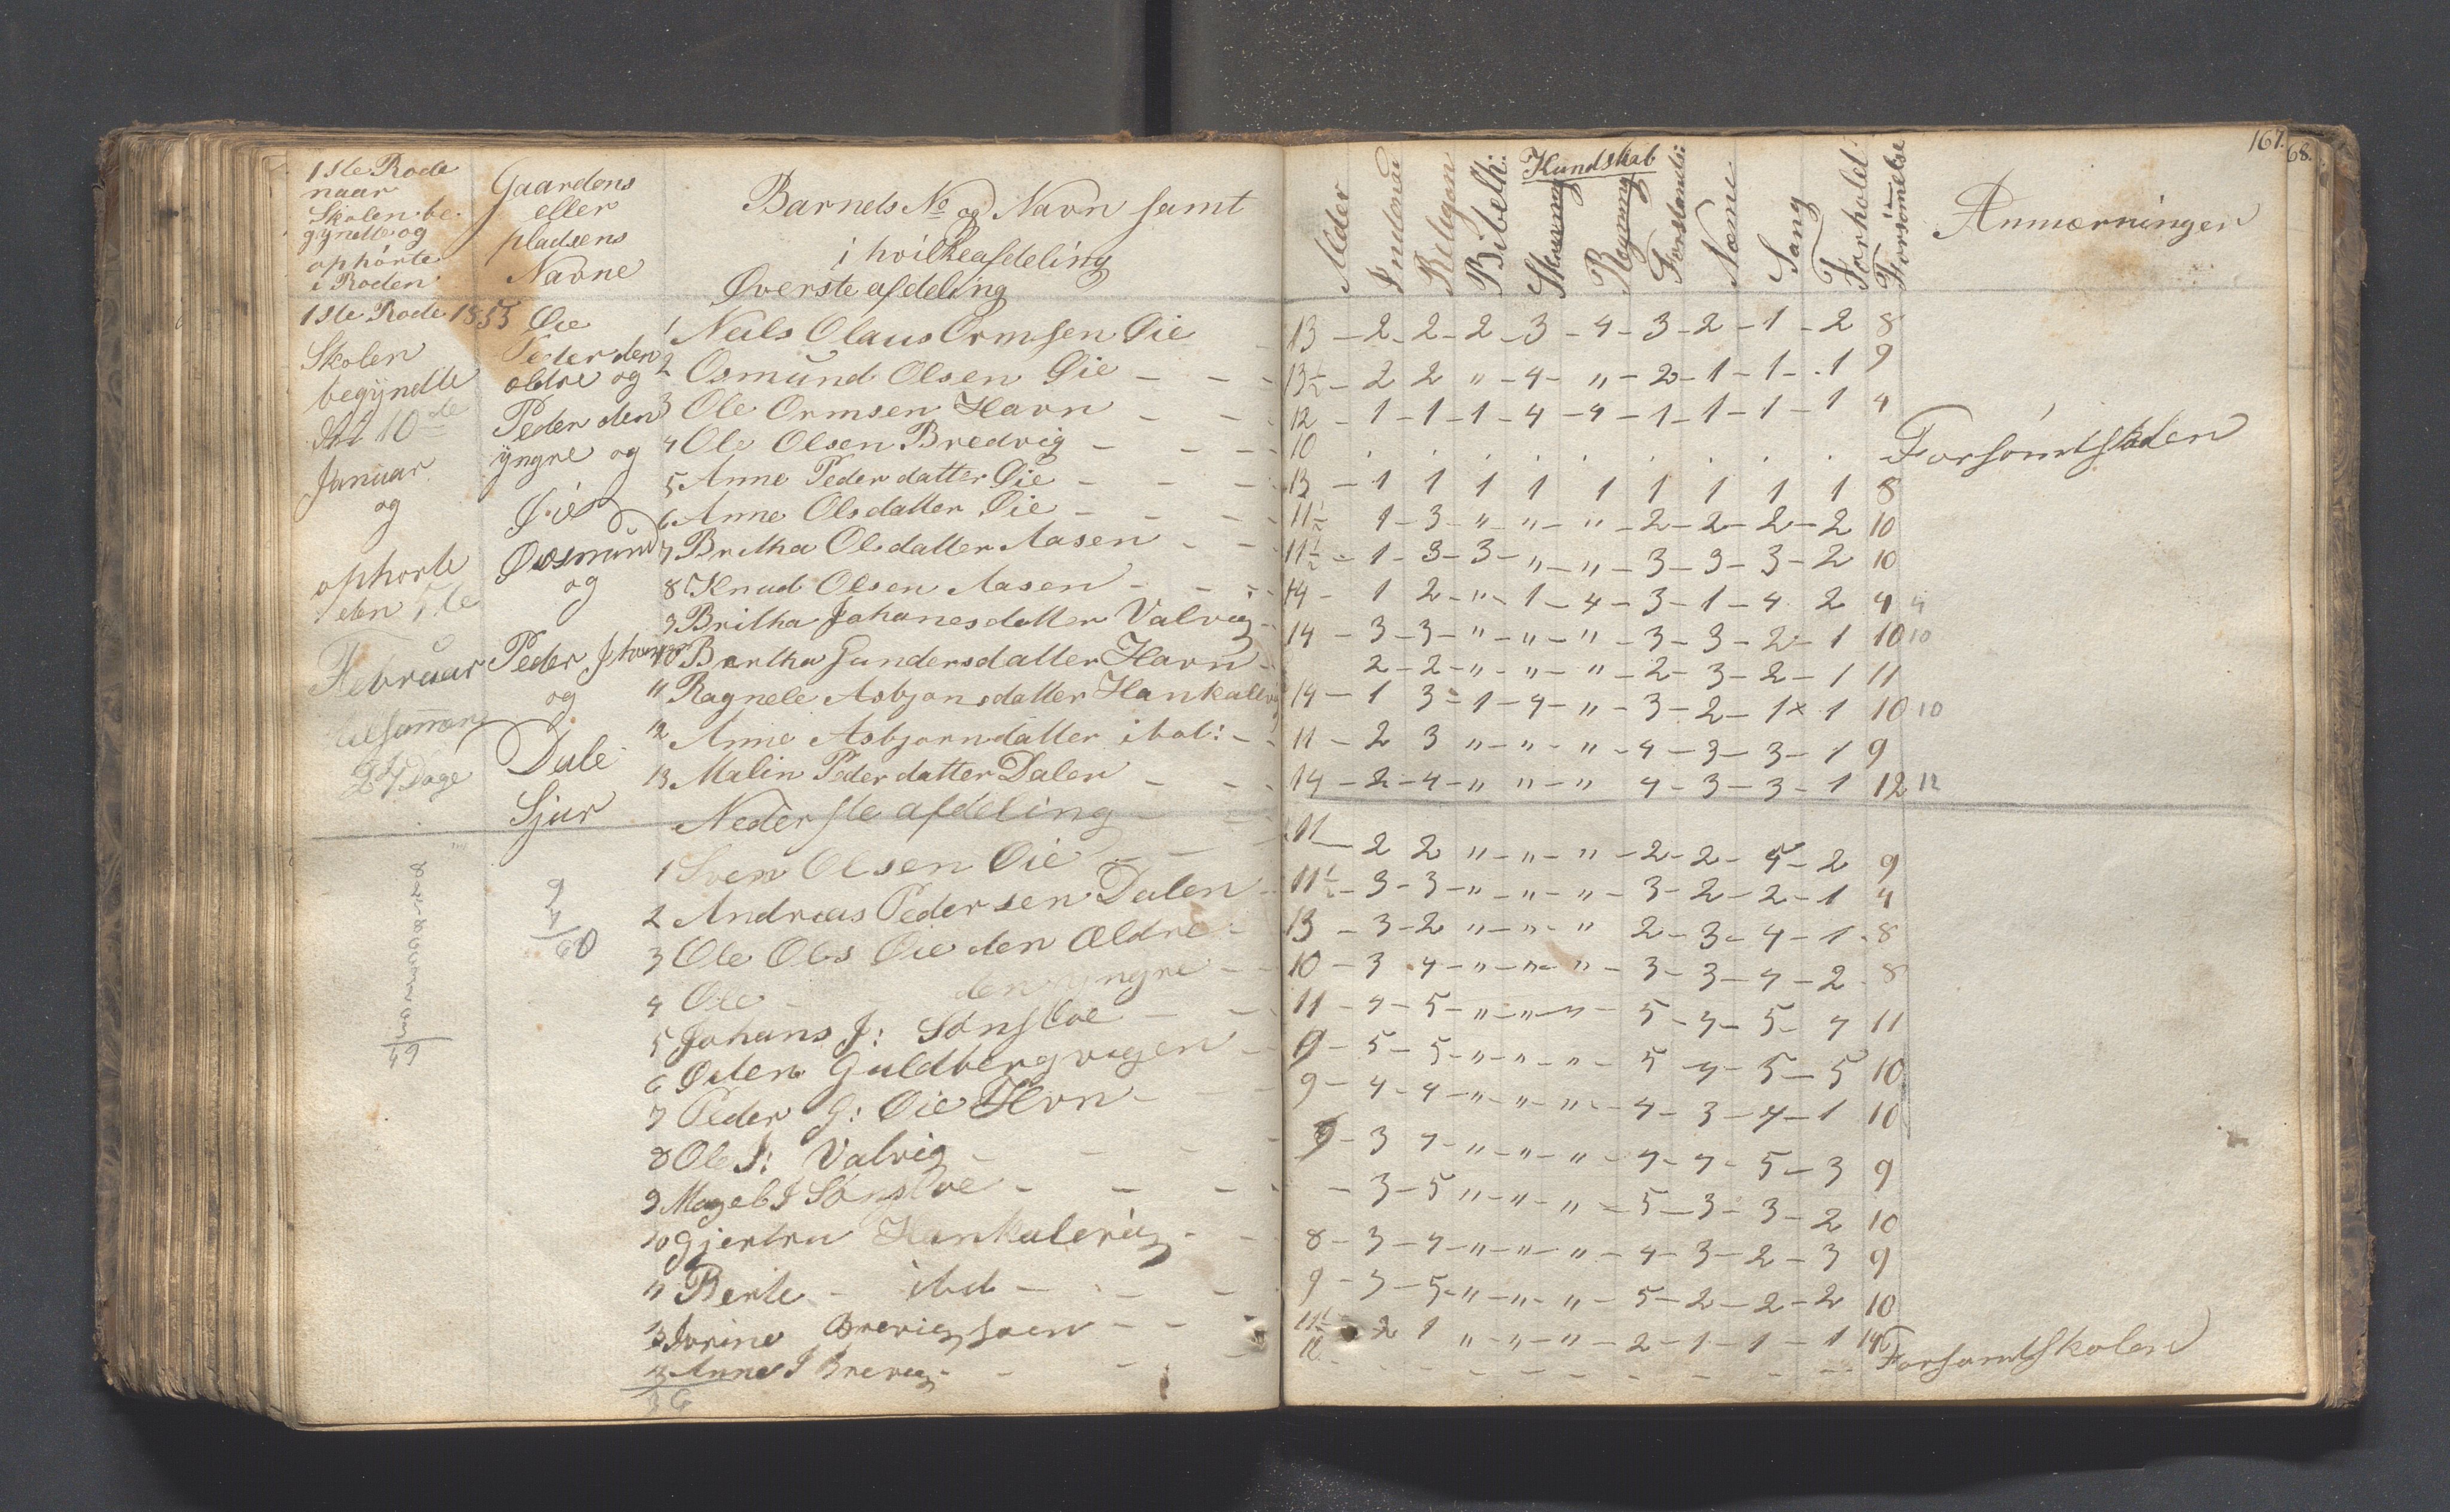 1ste Rode
naar
Skolen be
gyndte og
ophørte
i Roden
Gaardens
eller
pladsens
Navne
Barnets No og Navn samt
i hvilke afdeling
Øverste afdeling
1ste Rode 1853
Skolen
begyndte
den 10de
Januar
og
ophorte
den 5te
Februar
tilsammen
24 Dage
Øie
Peder den
ældre og
Peder den
yngre og
Øie
Osmund
og
Peder
og
Dale
Sjur
1 Neils Olaus Ormsen Øie
2 Osmund Olsen Øie - - -
3 Ole Ormsen Havn - - -
4 Ole Olsen Bredvig - - -
5 Anne Peder datter Øie - - -
6 Anne Olsdatter Øie - - -
7 Britha Olsdatter Aasen - -
8 Knud Olsen Aasen - - -
9 Britha Johanesdatter Valvig -
10 Bertha Gundersdatter Havn -
11 Ragnele Asbjønsdatter Hankalevig
12 Anne Asbjørndatter ibid: - -
13 Malin Peder datter Dalen - - -
Nederste afdeling - -
1 Sven Olsen Øie - - -
2 Andreas Pedersen Dalen -
3 Ole Ols Øie den Ældre -
4 Ole - den yngre - -
5 Johans J: Sønstøe - -
6 Osten Guldberg vigen -
7 Peder G: Øie Hvn - -
8 Ole J: Valvig - - - -
9 Magel J Sønstøe - - - -
10 Gjertru Hankalevig - -
11 Berte - ibid - - -
12 Jorine Brevig soen - - -
13 Anne J Brevig - - - -
36
9
60
49
167.
68.
Alder
Indenad
Religion
Bibelh:
Kundskab
Skrivning
Regning
Forstands:
Næme
Sang
Forhold
Forsømelse
Anmærninger
13 - 2 - 2 - 2 - 3 - 4 - 3 - 2 - 1 - 2 8
13½ - 2 2 " - 4 - " - 2 - 1 - 1 - 1 9
12 - 1 - 1 - 1 - 4 - 4 - 1 - 1 - 1 - 1 4
10 . . . . . . . . . Forsømt Skolen
13 - 1 1 1 1 1 1 1 1 1 8
11½ 1 - 3 - " - " - " - 2 - 2 - 2 - 2 10
11½ - 1 - 3 - 3 - " - " - 3 - 3 - 3 - 2 10
14 - 1 2 - " - 1 - 4 - 3 - 1 - 4 2 4 4
14 - 3 - 3 - " - " - " - 3 - 3 - 2 - 1 10 10
2 - 2 - " - " - " - 2 - 3 - 2 - 1 11
14 - 1 3 - 1 - 4 - " - 3 - 2 - 1 × 1 10 10
11 - 2 3 " - " - " - 4 - 3 - 3 - 1 9
14 - 2 - 4 - " " - " 4 - 3 - 3 - 1 12 12
11 - 2 2 " - " - " - 2 - 2 - 5 - 2 9
11½ - 3 - 3 - " - " - " - 3 - 2 - 2 - 1 4
13 - 3 - 2 " - " - " 2 - 3 - 4 - 1 - 8
10 - 3 4 - " - " - " - 3 - 3 - 4 - 2 - 8
11 - 4 - 5 - " - " - " - 5 - 4 - 5 - 4 11
9 - 5 - 5 - " - " - " - 5 - 4 - 5 - 5 10
9 - 4 - 4 - " - " - " - 4 - 3 - 4 - 1 10
9 - 3 4 - " - " - " - 4 - 4 - 5 - 3 9
- 3 - 5 " - " - " - 5 - 3 - 3 - 2 10
8 - 3 - 4 - " - " - " - 4 - 3 - 2 - 3 9
9 - 3 - 5 - " - " - " - 5 - 2 - 2 - 2 10
11½ - 2 1 " - " - " - 2 - 1 - 1 - 1
12 - - - - - - - - - Forsømt Skolen